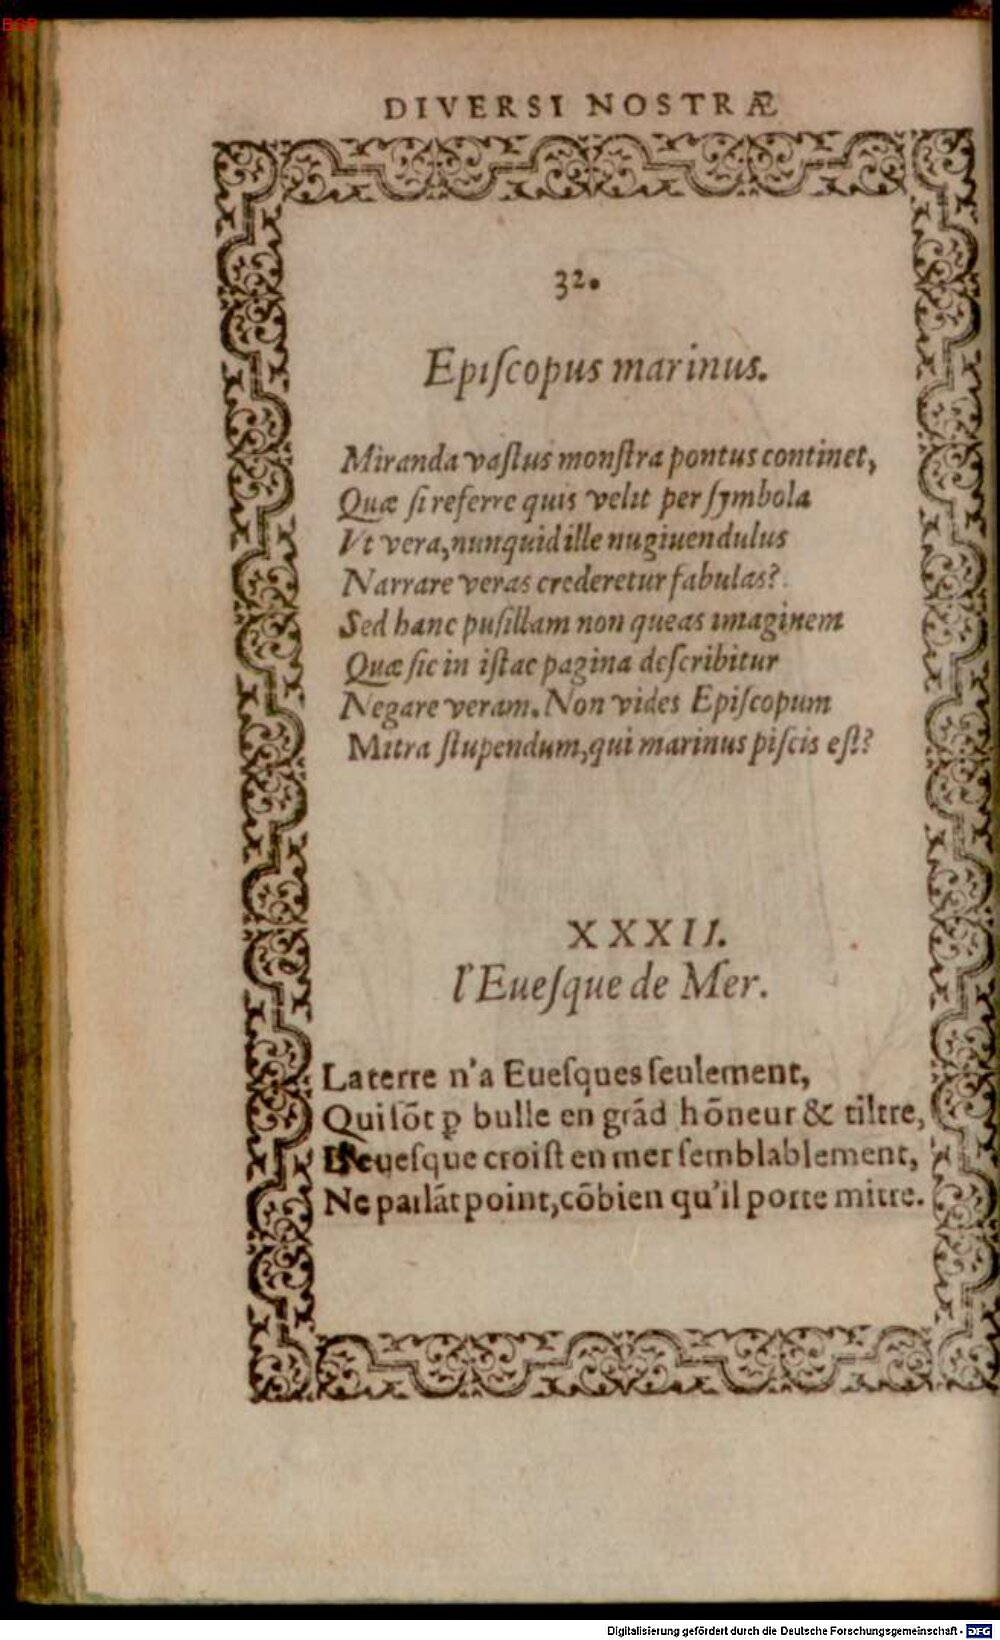 BSB
DIVERSI NOSTRÆ
32.
Epiſcopus marinus.
Miranda vaſtus monſtra pontus continet,
Quæ ſi referre quis velit per ſymbola
Vt vera, nunquid ille nugiuendulus
Narrare veras crederetur fabulas?
Sed hanc puſillam non queas imaginem
Quæ ſic in iſtac pagina deſcribitur
Negare veram. Non vides Epiſcopum
Mitra ſtupendum, qui marinus piſcis eſt?
XXXII.
l'Eueſque de Mer.
La terre n'a Eueſques ſeulement,
Qui ſõt ꝑ bulle en grãd hõneur & tiltre,
L'eueſque croiſt en mer ſemblablement,
Ne parlãt point, cõbien qu'il porte mitre.
Digitalisierung gefördert durch die Deutsche Forschungsgemeinschaft - DFG